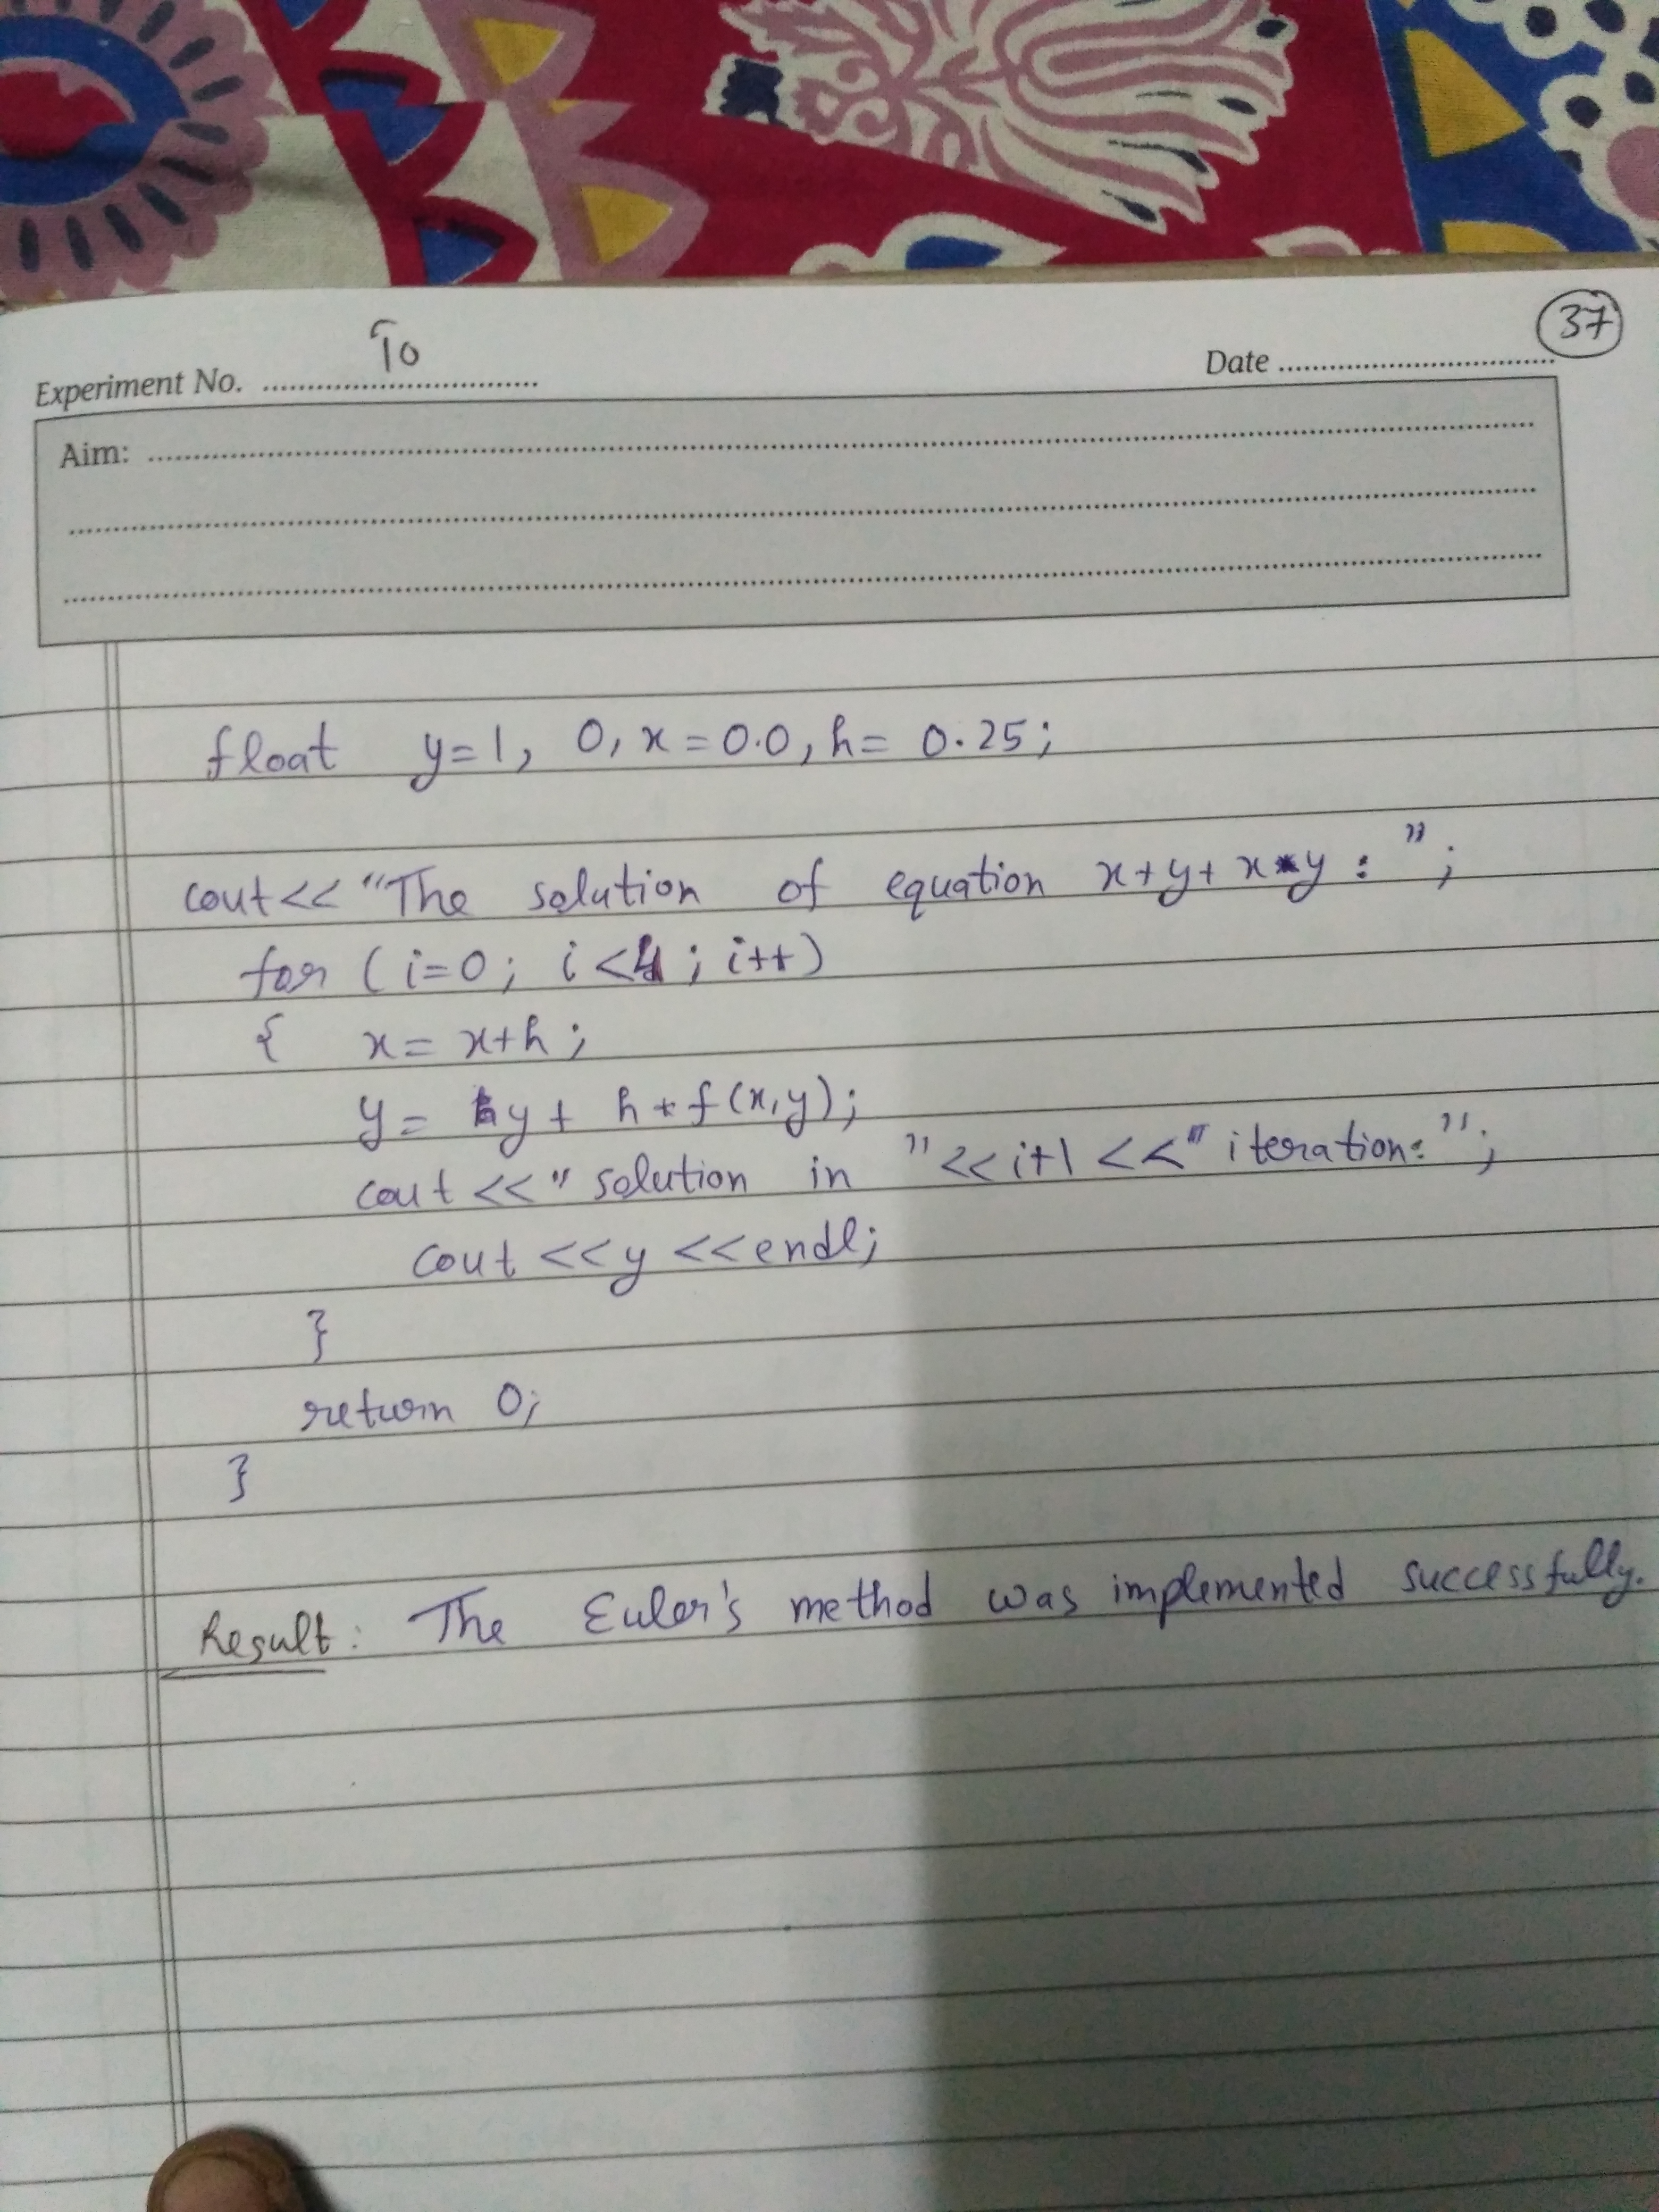 37
Experiment No. 10
Date
Aim:
float y=1, 0, x=0.0, h= 0.25;
cout<< "The solution of equation x+y+x*y : ";
for (i=0; i<4; i++)
{ x= x+h;
y= y+ h*f(x,y);
cout <<" solution in "<<i+1 <<" iteration: ";
cout <<y <<endl;
}
return 0;
}
Result: The Euler's method was implemented successfully.